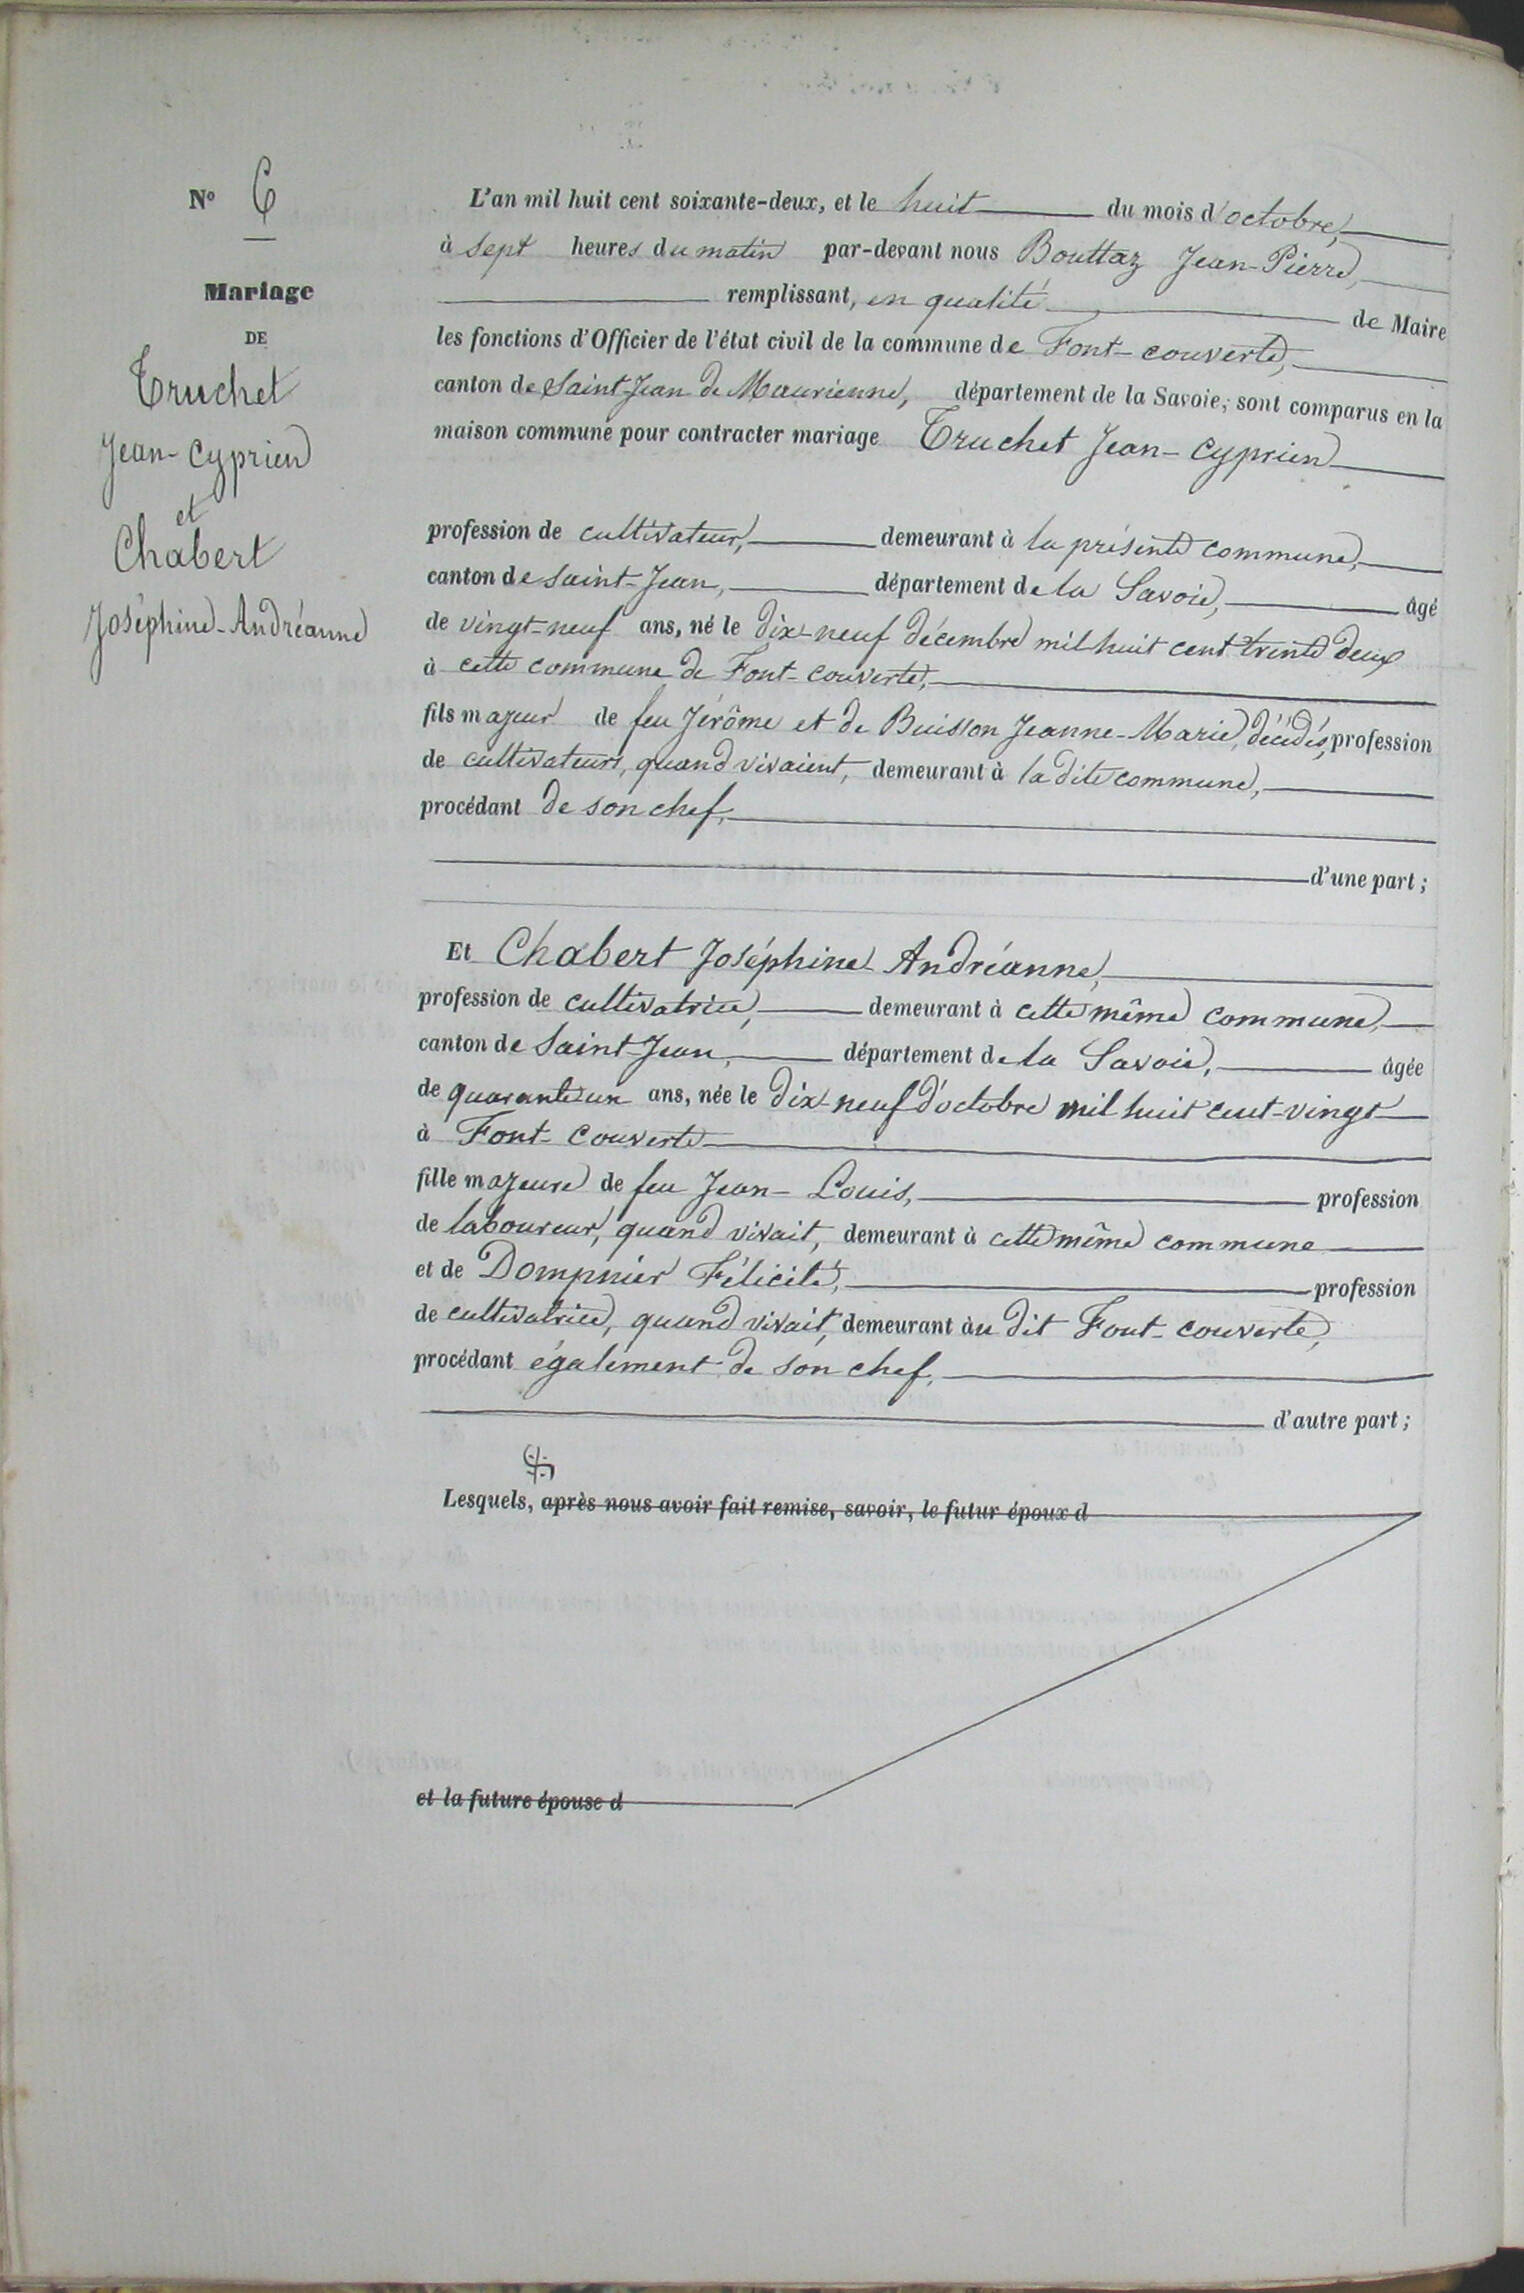 N° 6
Mariage
DE
Truchet
Jean-Cyprien
et
Chabert
Joséphine-Andréanne
L'an mil huit cent soixante-deux, et le huit du mois d'octobre,
à sept heures du matin par-devant nous Bouttaz Jean-Pierre,
remplissant, en qualité de Maire
les fonctions d'Officier de l'état civil de la commune de Font-couverte,
canton de Saint-Jean de Maurienne, département de la Savoie, sont comparus en la
maison commune pour contracter mariage Truchet Jean-Cyprien
profession de cultivateur, demeurant à la présente commune,
canton de Saint-Jean, département de la Savoie, âgé
de vingt-neuf ans, né le dix-neuf décembre mil huit cent trente deux
à cette commune de Font-couverte,
fils majeur de feu Jérôme et de Buisson Jeanne-Marie, décédés, profession
de cultivateurs, quand vivaient, demeurant à la dite commune,
procédant de son chef,
d'une part ;
Et Chabert Joséphine-Andréanne,
profession de cultivatrice, demeurant à cette même commune,
canton de Saint-Jean, département de la Savoie, âgée
de quarante un ans, née le dix-neuf d'octobre mil huit cent-vingt
à Font-couverte
fille majeure de feu Jean-Louis, profession
de laboureur, quand vivait, demeurant à cette même commune
et de Dompnier Félicité, profession
de cultivatrice, quand vivait, demeurant au dit Font-couverte,
procédant également de son chef,
d'autre part ;
Lesquels, après nous avoir fait remise, savoir, le futur époux d
et la future épouse d